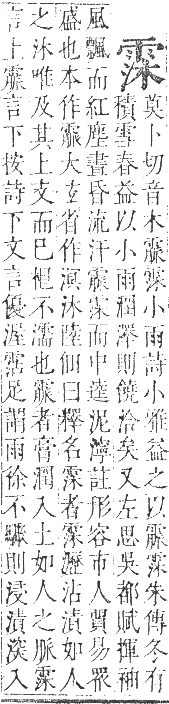 霂
莫卜切音木霢霂小雨詩小雅益之以霢霂朱傳冬有
積雪春益以小雨潤澤則饒洽矣又左思吳都賦揮袖
風飄而紅塵晝昏流汗霢霂而中逵泥濘註形容市人貿易衆
盛也本作霢大玄省作溟沐陸佃曰釋名霂者霂瀝沾漬如人
之沐唯及其上支而已根不濡也霢者膏潤入土如人之脈霂
言上霢言下按詩下文言優渥霑足謂雨徐不驟則浸漬深入